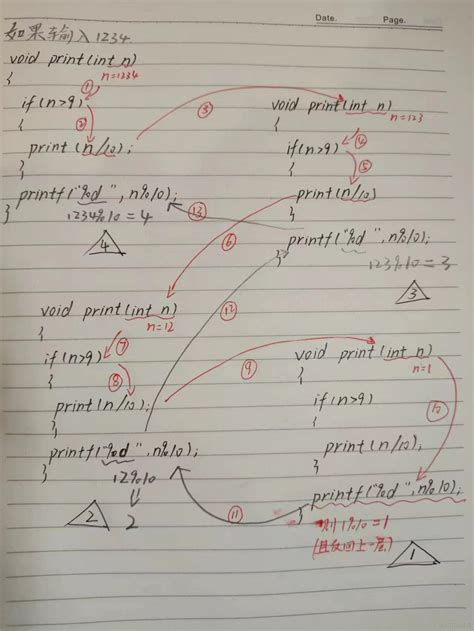 Date. Page.
如果输入1234.
void print(int n)
n=1234
{
①
if(n>9)
②
{
print(n/10);
③
printf("%d",n%10);
}
1234%10=4
⑬
4
void print(int n)
n=123
{
④
if(n>9)
⑤
{
print(n/10)
}
⑥
printf("%d",n%10);
}
123%10=3
3
void print(int n)
n=12
{
⑦
if(n>9)
⑧
{
print(n/10);
}
⑨
⑫
printf("%d",n%10);
}
12%10
2
2
void print(int n)
n=1
{
if(n>9)
⑩
{
print(n/10);
}
printf("%d",n%10);
}
⑪
则1%10=1
(且返回上一层)
1